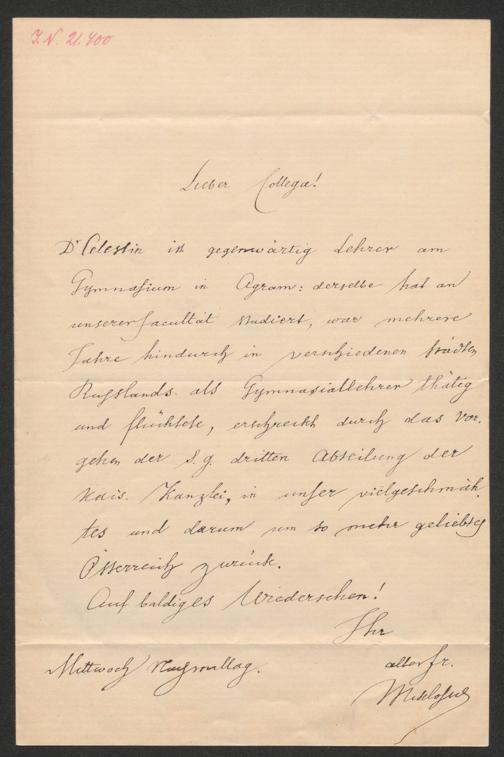 I.N. 21.400
Lieber Collega!
Dr Celestin ist gegenwärtig Lehrer am
Gymnasium in Agram: derselbe hat an
unserer Facultät studiert, war mehrere
Jahre hindurch in verschiedenen Städten
Russlands als Gymnasiallehrer thätig
und flüchtete, erschreckt durch das Vor-
gehen der s.g. dritten Abteilung der
Kais. Kanzlei, in unser vielgeschmäh-
tes und darum um so mehr geliebtes
Österreich zurück.
Auf baldiges Wiedersehen!
Ihr
Mittwoch Nachmittag.
alter Fr.
Miklosich